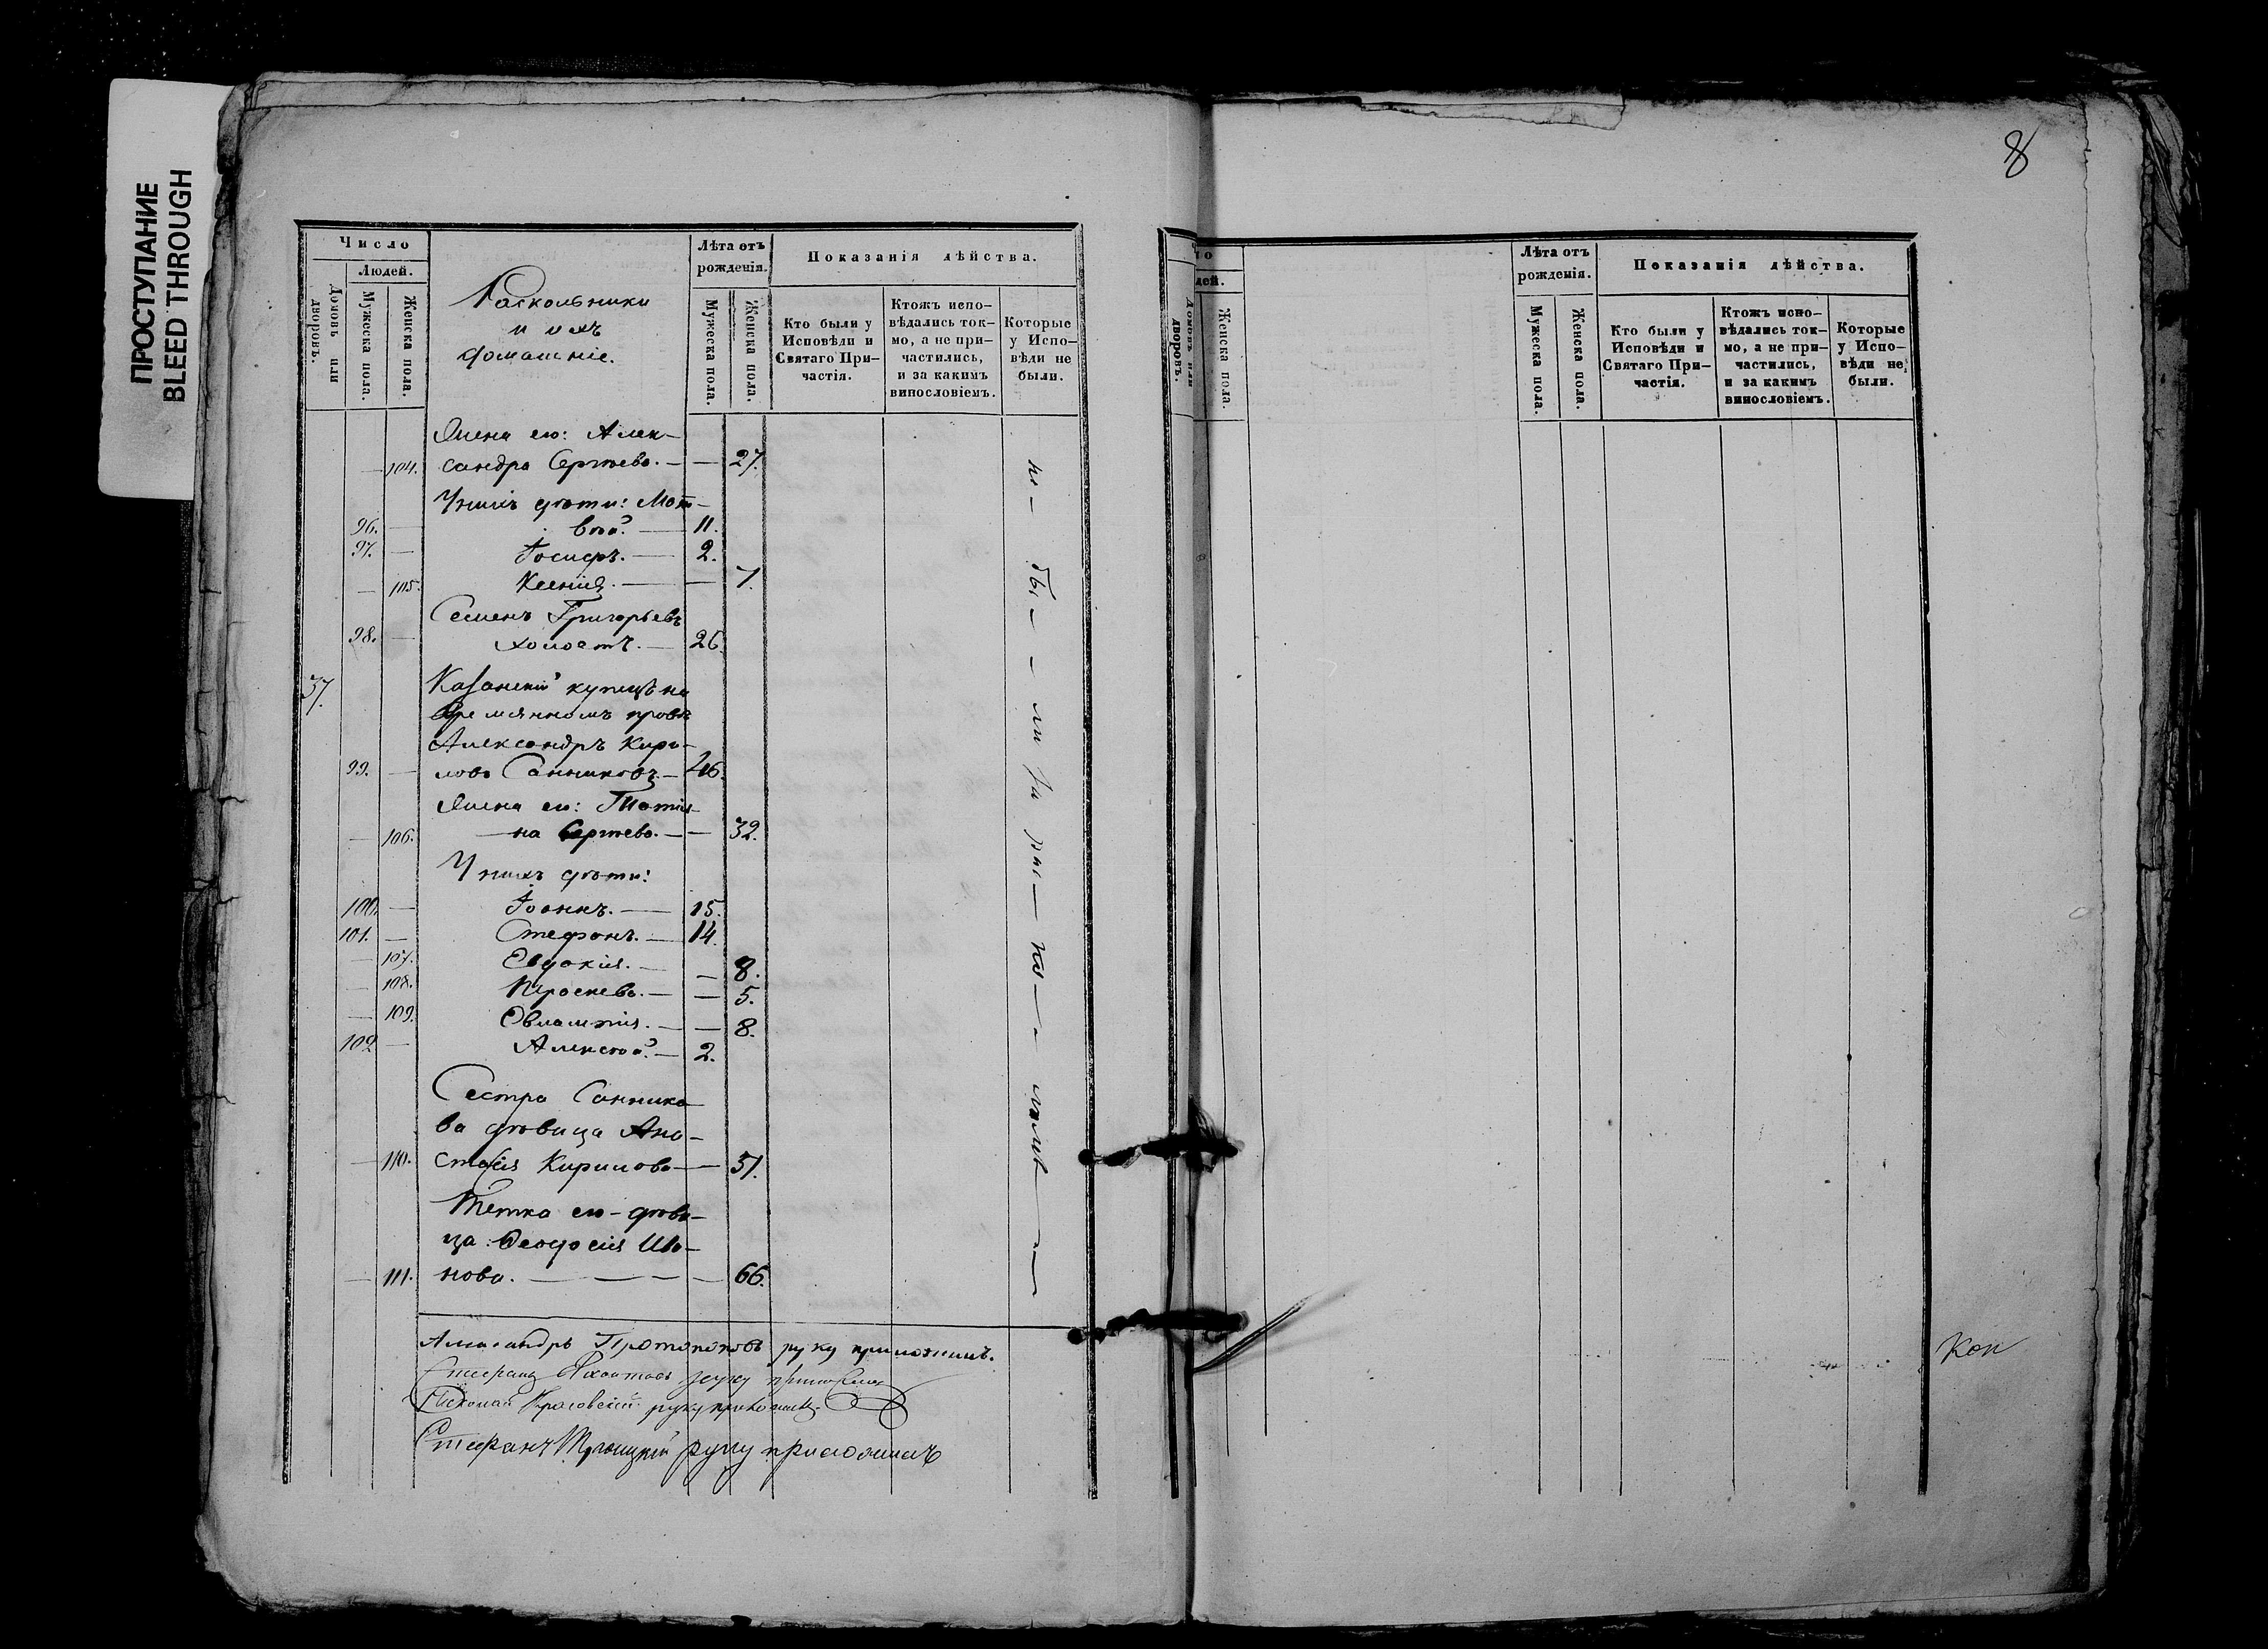 ПРОСТУПАНИЕ
BLEED THROUGH
8
Число
Людей.
Домовъ или дворовъ.
Мужеска пола.
Женска пола.
Раскольники
и ихъ
домашніе.
Лѣта отъ
рожденія.
Мужеска пола.
Женска пола.
Показанія дѣйства.
Кто были у
Исповѣди и
Святаго При-
частія.
Ктожъ испо-
вѣдались ток-
мо, а не при-
частились,
и за какимъ
винословіемъ.
Которые
у Испо-
вѣди не
были.
Жена его: Алек-
— 104. сандра Сергѣева. — — 27.
У нихъ дѣти: Мат-
96. — вѣй. — 11.
97. — Іосифъ. — 2.
— 105. Ксенія. — — 7.
Семенъ Григорьевъ
98. — холостъ. — 26.
37. Казанскій купецъ на
времянномъ правѣ
Александръ Кири-
99. — ловъ Санниковъ. — 46.
Жена его: Татія-
— 106. на Сергѣева. — — 32.
У нихъ дѣти:
100. — Іоаннъ. — 15.
101. — Стефанъ. — 14.
— 107. Евдокія. — — 8.
— 108. Параскева. — — 5.
— 109. Евлампія. — — 8.
102 — Алексѣй. — 2.
Сестра Саннико-
ва дѣвица Ана-
— 110. стасія Кирилова — — 51.
Тетка его — дѣви-
ца: Ѳеодосія Ива-
— 111. нова. — — — — 66.
не — бы — — ли за рас — ко — — ломъ
Александръ Протопоповъ руку приложилъ.
Стефанъ руку приложилъ
Николай руку приложилъ
Стефанъ Троицкій руку приложилъ
то
дей.
Домовъ или дворовъ.
Женска пола.
Лѣта отъ
рожденія.
Мужеска пола.
Женска пола.
Показанія дѣйства.
Кто были у
Исповѣди и
Святаго При-
частія.
Ктожъ испо-
вѣдались ток-
мо, а не при-
частились,
и за какимъ
винословіемъ.
Которые
у Испо-
вѣди не
были.
Коп